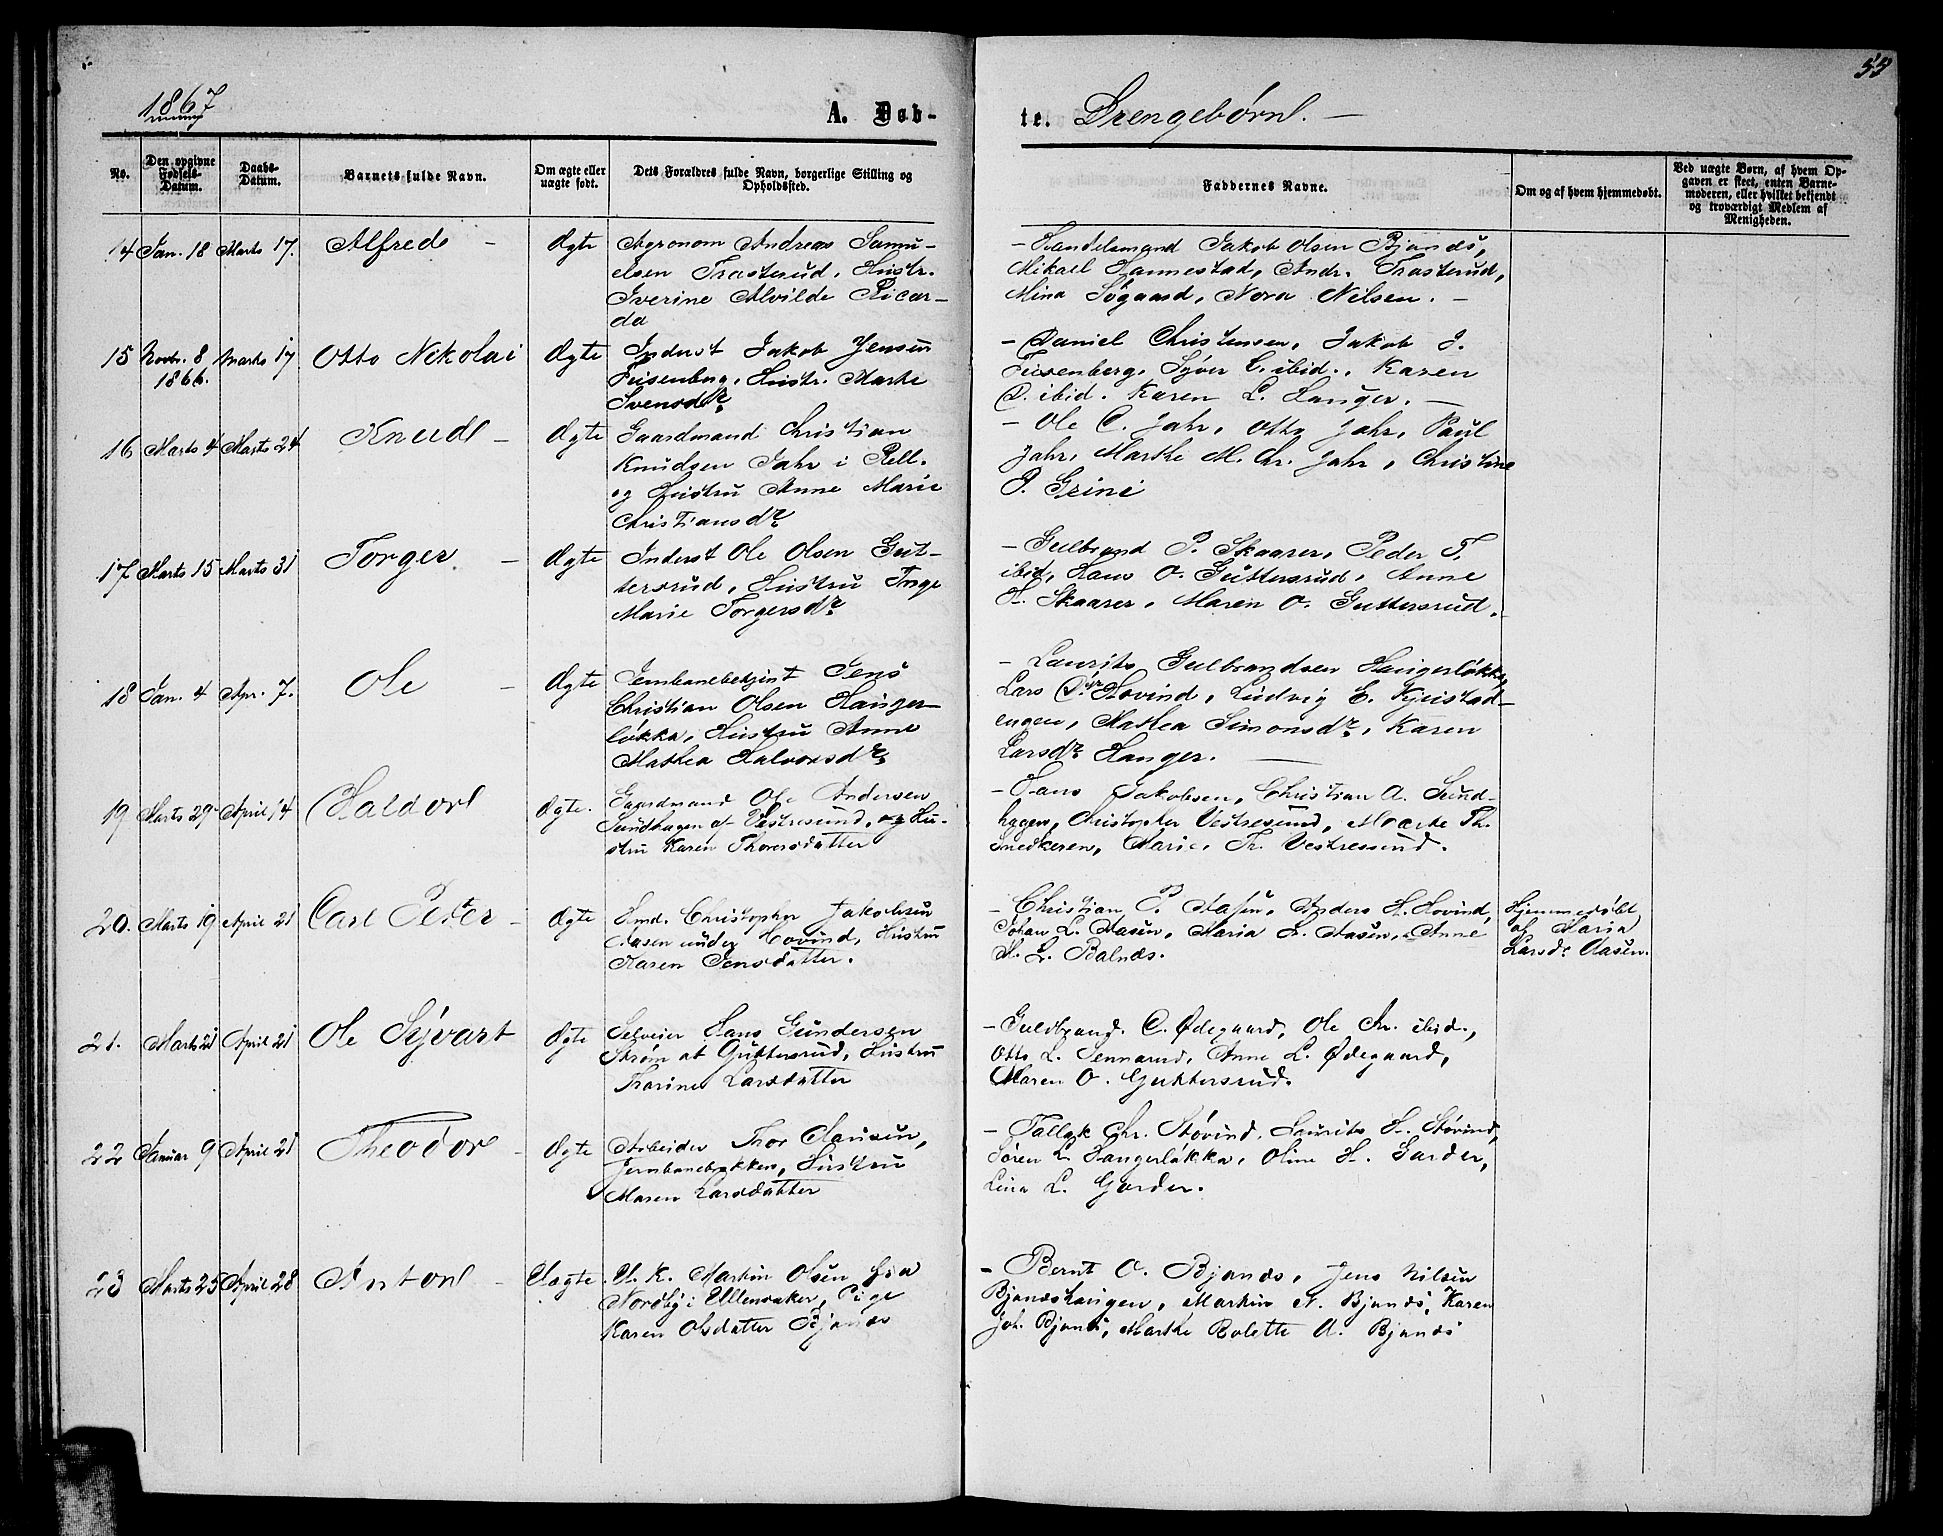 55
1867
A. Døb-
te. Drengebørn. —
No.
Den opgivne Fødsels-Datum.
Daabs-Datum.
Barnets fulde Navn.
Om ægte eller uægte født.
Dets Forældres fulde Navn, borgerlige Stilling og Opholdssted.
Faddernes Navne.
Om og af hvem hjemmedøbt.
Ved uægte Børn, af hvem Opgaven er skeet, enten Barnemoderen, eller hvilket bekjendt og troværdigt Medlem af Menigheden.
14 Jan. 18 Marts 17. Alfred — Ægte
Agronom Andreas Samu-
elsen Trosterud, Hustr.
Iverine Alvilde Ricar-
da
— Handelsmand Jakob Olsen Bjønds,
Mikael Hannestad, Andr. Trosterud,
Mina Søgaard, Nora Nilsen. —
15 Novbr. 8 1866. Marts 17 Otto Nikolai Ægte
Inderst Jakob Jensen
Feisenberg, Hustr. Marthe
Svensdr
— Daniel Christensen, Jakob J.
Feisenberg, Syver C. ibid., Karen
D. ibid. Karen L. Hauger. —
16 Marts 4 Marts 24 Knud — Ægte
Gaardmand Christian
Knudsen Jahr i Rell.
og Hustru Anne Marie
Christiansdr
— Ole C. Jahr, Otto Jahr, Paul
Jahr, Marthe M. Chr. Jahr, Christine
P. Grini
17 Marts 15 Marts 31 Torger. — Ægte
Inderst Ole Olsen Gut-
tersrud, Hustru Inge
Marie Torgersdr
— Gulbrand P. Skaarer, Peder T.
ibid, Hans O. Guttersrud, Anne
H. Skaarer, Maren O. Guttersrud.
18 Jan. 4 Apr. 7. Ole — Ægte
Jernbanebetjent Jens
Christian Olsen Hauger-
løkka, Hustru Anne
Mathea Halvorsdr
— Laurits Gulbrandsen Haugerløkka,
Lars Hovind, Ludvig E. Kjeistad-
engen, Mathea Simonsdr, Karen
Larsdr Hanger. —
19 Marts 29 April 14 Haldor Ægte.
Gaardmand Ole Andersen
Sundhagen af Vestresund, og Hu-
stru Karen Thoresdatter
— Hans Jakobsen, Christian A. Sund-
hagen, Christopher Vestresund, Marthe Th.
Snedkeren, Marie Th. Vestresund.
20. Marts 19 April 21 Carl Petter — Ægte
Hmd. Christopher Jakobsen
Aasen under Hovind, Hustru
Karen Jensdatter.
— Christian P. Aasen, Anders H. Hovind,
Johan L. Aasen, Maria L. Aasen, Anne
M. L. Balnæs.
Hjemmedøbt
af Maria
Larsdr Aasen.
21. Marts 21 April 21 Ole Syvart Ægte
Selveier Hans Gundersen
Strøm at Guttersrud, Hustru
Thorine Larsdatter
— Guldbrand. C. Ødegaard, Ole Chr. ibid.,
Otto L. Sennerud, Anne L. Ødegaard,
Maren O. Guttersrud.
22 Januar 9 April 21 Theodor — Ægte
Arbeider Thor Hansen,
Jernbanebakken, Hustru
Maren Larsdatter
— Tallak Chr. Støvind, Laurits H. Støvind,
Søren L. Haugerløkka, Oline H. Garder,
Lina L. Garder.
23 Marts 25 April 28 Anton — Uægte.
U. K. Martin Olsen fra
Nordby i Ullensaker, Pige
Karen Olsdatter Bjønds
— Bernt O. Bjønds, Jens Nilsen
Bjøndshaugen, Martin N. Bjønds, Karen
Joh. Bjønds, Marthe Bolette A. Bjønds